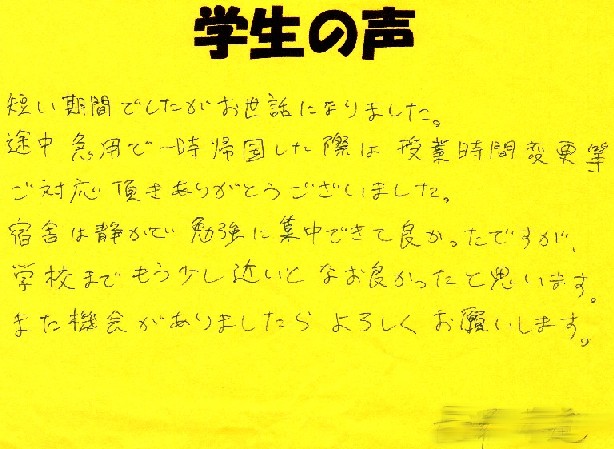 学生の声
短い期間でしたがお世話になりました。
途中 急用で一時帰国した際は 授業時間変更等
ご対応頂きありがとうございました。
宿舎は静かで 勉強に集中できて良かったですが、
学校まで もう少し近いと なお良かったと思います。
また機会がありましたら よろしく お願いします。